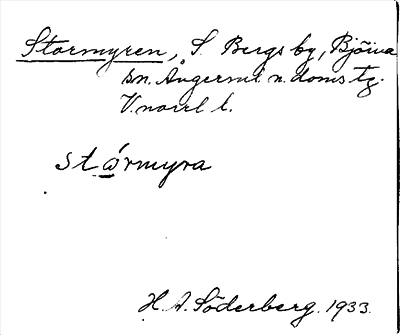 Stormyren, S. Bergs by, Björna
sn. Ångerml. n. doms tg.
V.norrl l.
stórmyra
H. A. Söderberg. 1933.